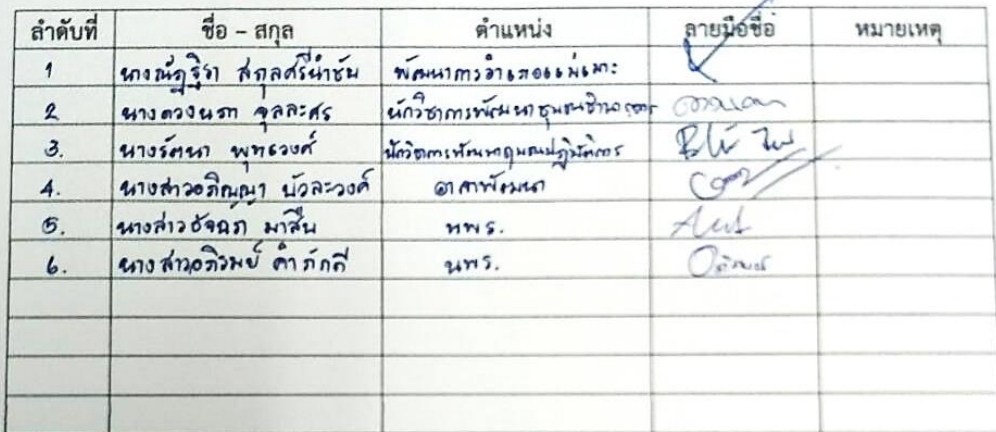 ลำดับที่ ชื่อ – สกุล ตำแหน่ง ลายมือชื่อ หมายเหตุ
1 นางณัฏฐิรา สกุลศรีนำชัย พัฒนาการอำเภอแม่เมาะ
2 นางดวงนภา จุลละศร นักวิชาการพัฒนาชุมชนชำนาญการ
3. นางรัตนา พุทธวงค์ นักวิชาการพัฒนาชุมชนปฏิบัติการ
4. นางสาวอภิญญา บัวละวงค์ อาสาพัฒนา
5. นางสาว มาสืบ นพร.
6. นางสาวอภิรมย์ คำภักดี นพร.